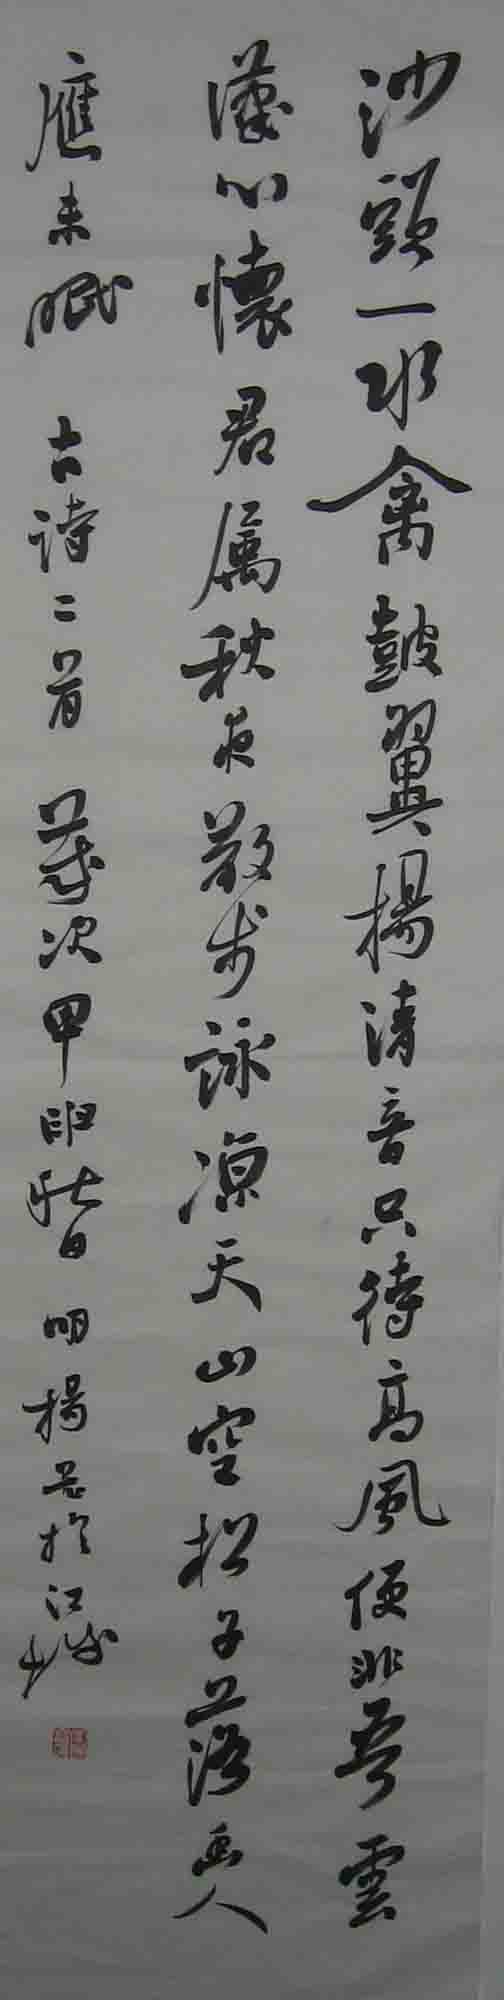 沙頭一水禽皷翼揚清音只待高風便非無雲
漢心懷君属秋夜散步詠凉天山空松子落幽人
應未眠 古詩二首 歲次甲申秋日 明楊書於江城